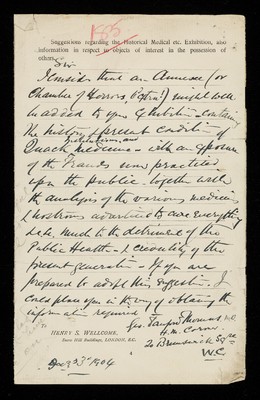 185
Suggestions regarding the Historical Medical etc. Exhibition, also
information in respect to objects of interest in the possession of
others.
Sir
I consider that an Annexe (or
Chamber of Horrors Extra!) might well
be added to your Exhibition containing
the history & present condition of
Quack medicines and
with an exposure
of the Frauds now practised
upon the public together with
the analysis of the various medicines
& nostrums advertised to cure everything
&c. much to the detriment of the
Public Health & credulity of the
present generation. If you are
prepared to adopt this suggestion. I
could place you in the way of obtaining the
information required
Geo. Danford Thomas M.D.
H.M. Coroner
To
HENRY S. WELLCOME,
Snow Hill Buildings, LONDON, E.C.
20 Brunswick Sq.
W.C.
Dec 23rd 1904